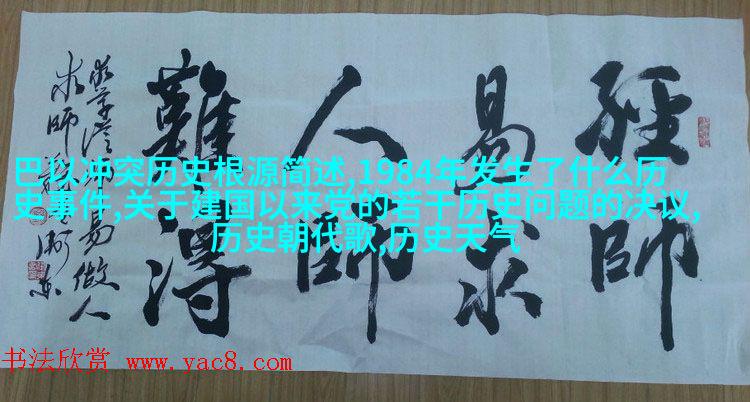 經師
易求
人師
難得
易做人
求師難
巴以冲突历史根源简述,1984年发生了什么历
史事件,关于建国以来党的若干历史问题的决议,
历史朝代歌,历史天气
书法欣赏 www.yac8.com